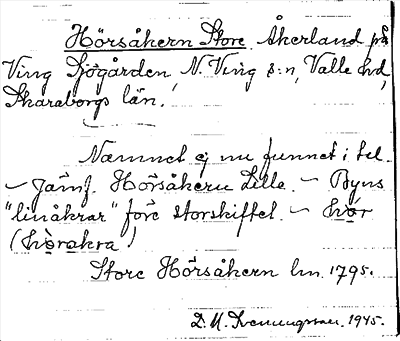 Hörsåkern Store. Åkerland på
Ving Sjögården, N. Ving s:n, Valle hd,
Skaraborgs län.
Namnet ej nu funnet i tel.
– Jämf. Hörsåkern Lille. – Byns
"linåkrar" före storskiftet. – hör
(hörakra)
Store Hörsåkern lm. 1795.
D. M. 1945.